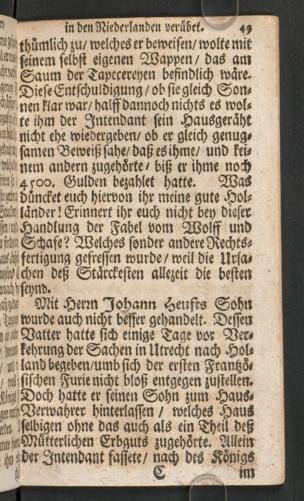 in den Niederlanden verübet. 49
thümlich zu / welches er beweisen / wolte mit
seinem selbst eigenen Wappen / das am
Saum der Tapecereyen befindlich wäre.
Diese Entschuldigung / ob sie gleich Son-
nen klar war / halff dannoch nichts es wol-
te ihm der Intendant sein Haußgeräht
nicht ehe wiedergeben / ob er gleich genug-
samen Beweiß sahe / daß es ihme / und kei-
nem andern zugehörte / biß er ihme noch
4500. Gulden bezahlet hatte. Was
düncket euch hiervon ihr meine gute Hol-
länder! Erinnert ihr euch nicht bey dieser
Handlung der Fabel vom Wolff und
Schafe? Welches sonder andere Rechts-
fertigung gefressen wurde / weil die Ursa-
chen deß Stärckesten allezeit die besten
seynd.
Mit Herrn Johann Heufts Sohn
wurde auch nicht besser gehandelt. Dessen
Vatter hatte sich einige Tage vor Ver-
kehrung der Sachen in Utrecht nach Hol-
land begeben / umb sich der ersten Frantzö-
sischen Furie nicht bloß entgegen zustellen.
Doch hatte er seinen Sohn zum Haus-
Verwahrer hinterlassen / welches Haus
selbigen ohne das auch als ein Theil deß
Mütterlichen Erbguts zugehörte. Allein
der Intendant fassete / nach des Königs
C im